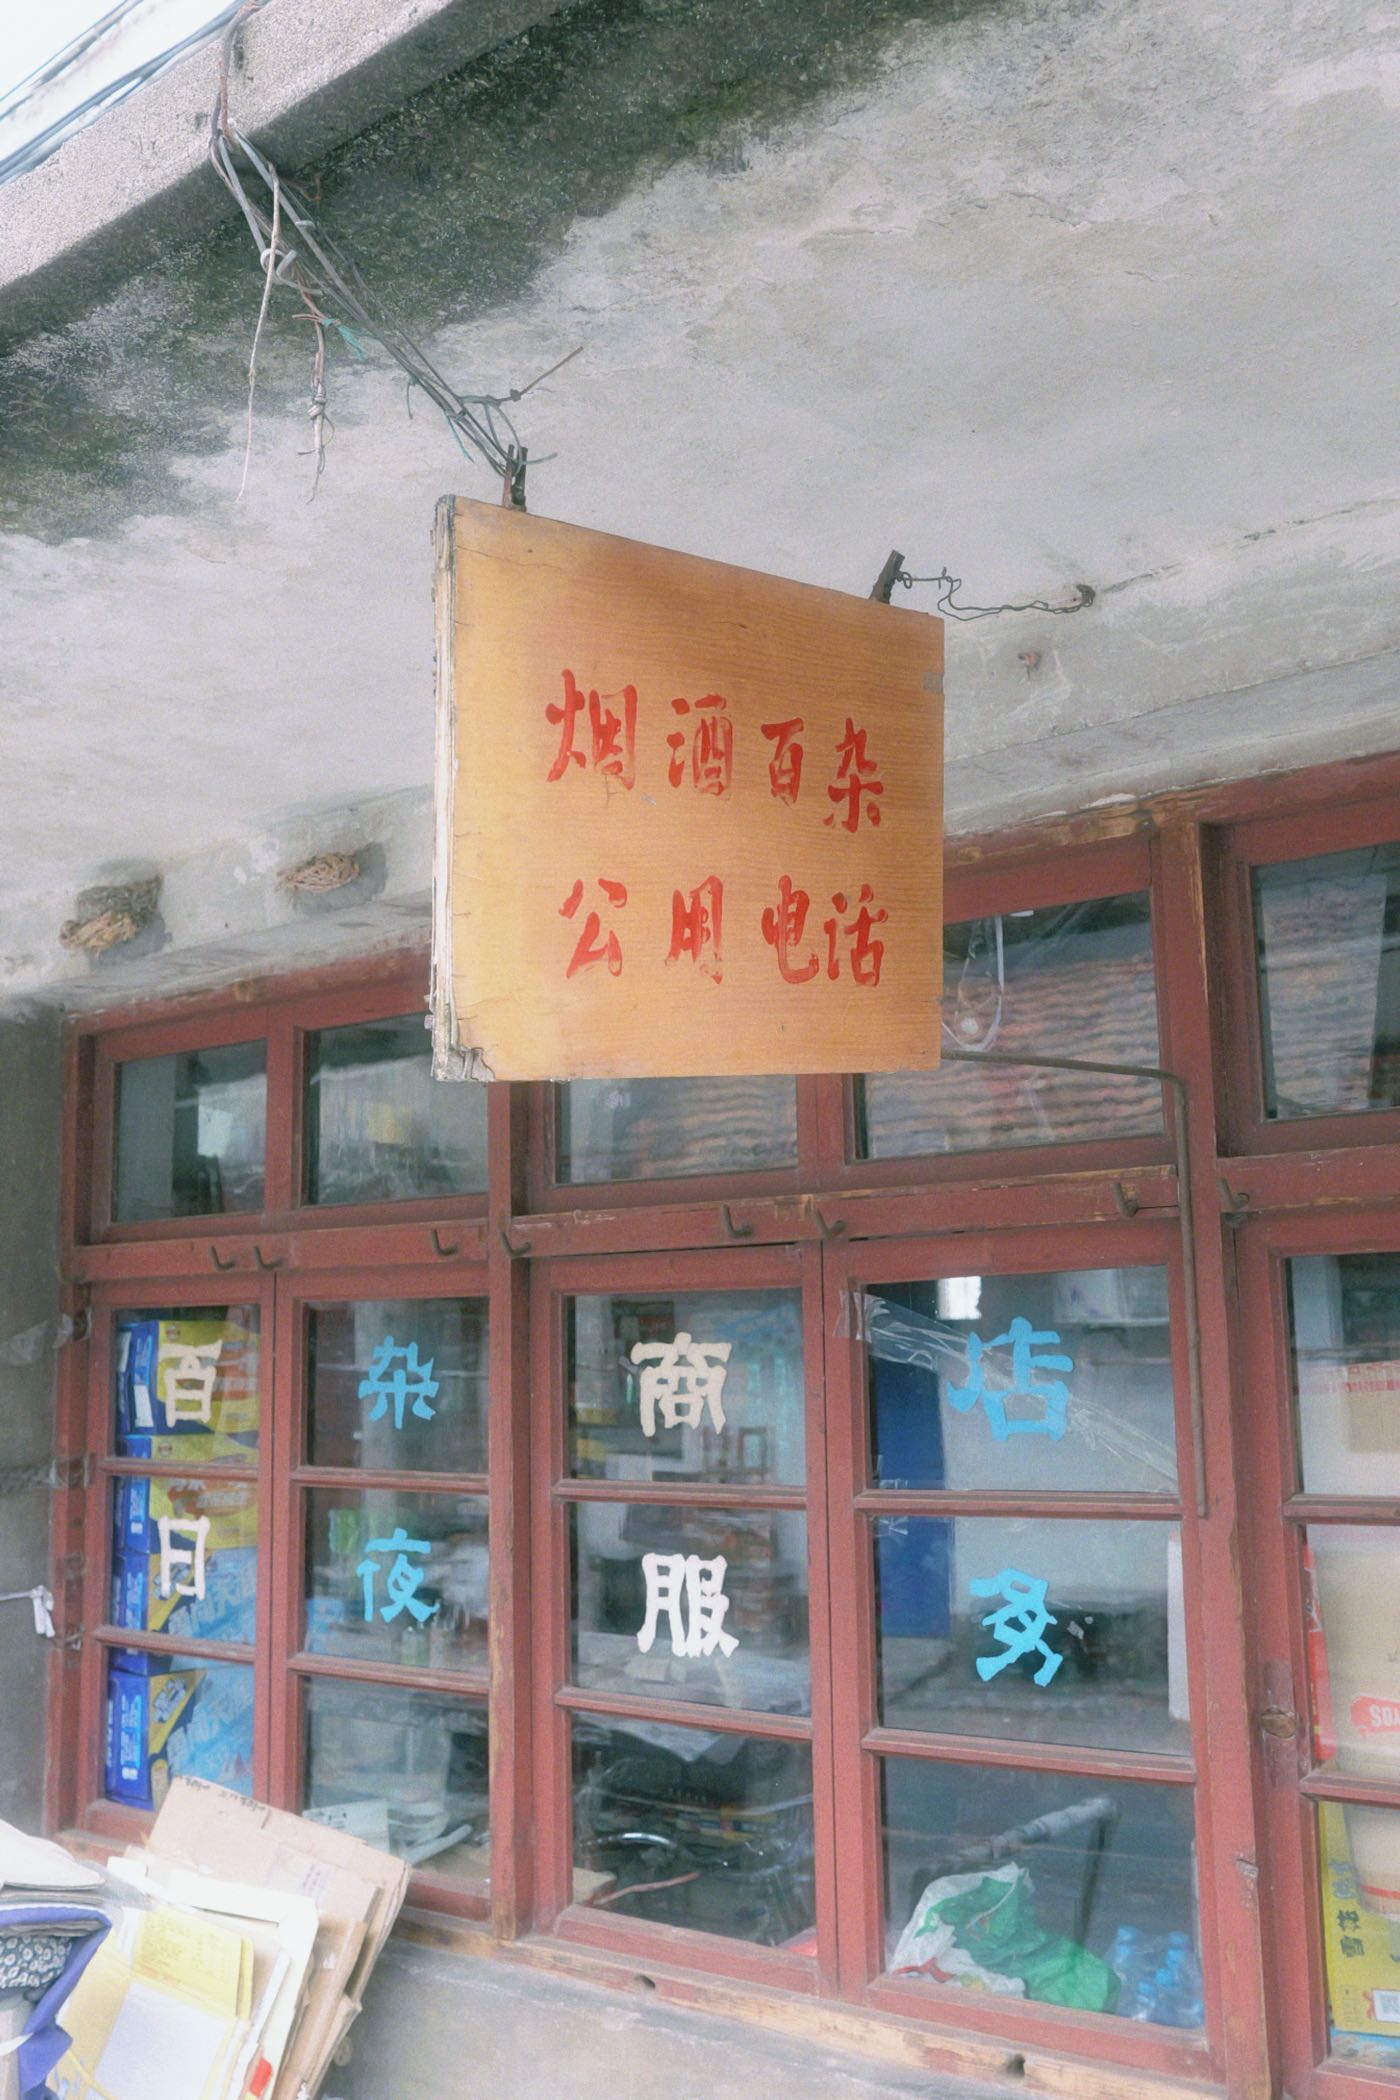 烟酒百杂
公用电话
百杂商店
日夜服务